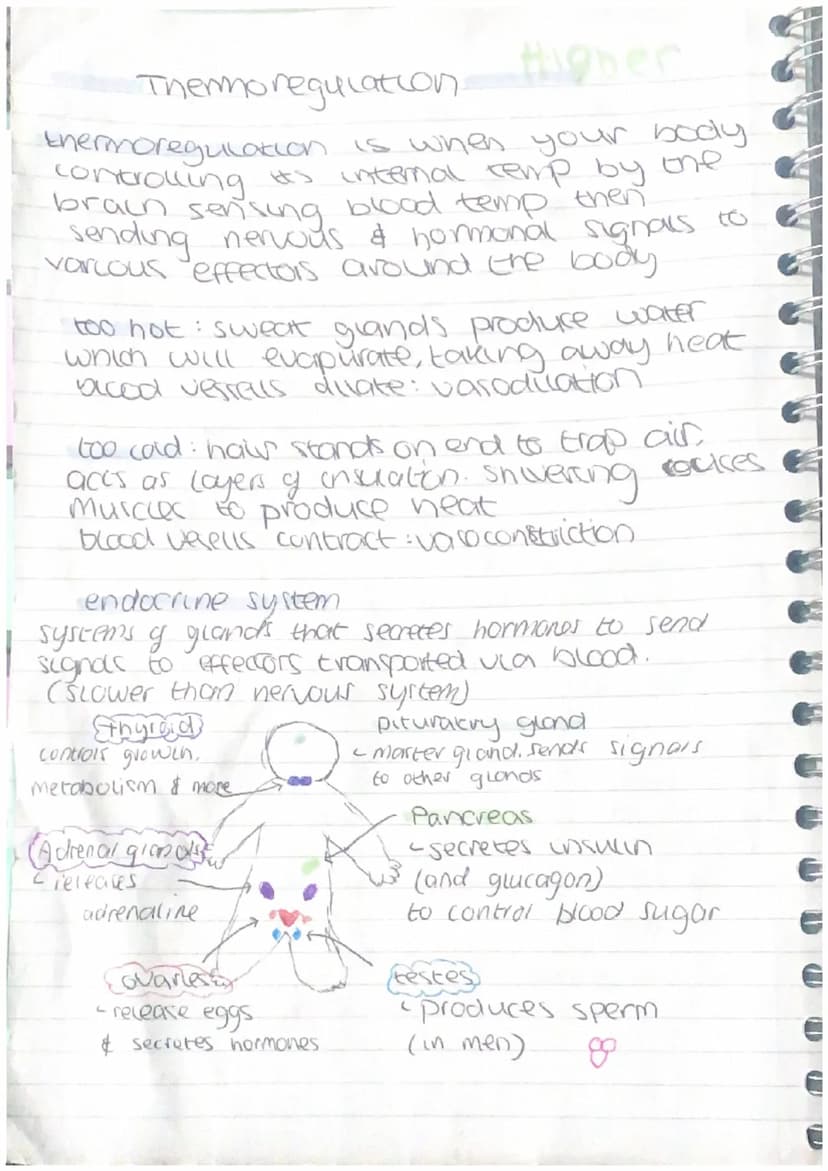 Higher
Thermoregulation
thermoregulation is when your body
controlling its internal temp by the
brain sensing blood temp then
sending nervous & hormonal signals to
various effectors around the body
too hot : sweat glands produce water
which will evapurate, taking away heat
blood vessells dilate : vasodilation
too cold : hair stands on end to trap air,
acts as layers of insulation. Shivering
muscles to produce heat
blood vesells contract : vasoconstriction
endocrine system
systems of glands that secretes hormones to send
signals to effectors transported via blood.
(slower than nervous system)
thyroid
controls growth,
metabolism & more
pituratry gland
master gland. sends signals
to other glands
Adrenal glands
releases
adrenaline
Pancreas
secretes insulin
(and glucagon)
to control blood sugar
ovaries
release eggs
& secretes hormones
testes
produces sperm
(in men)